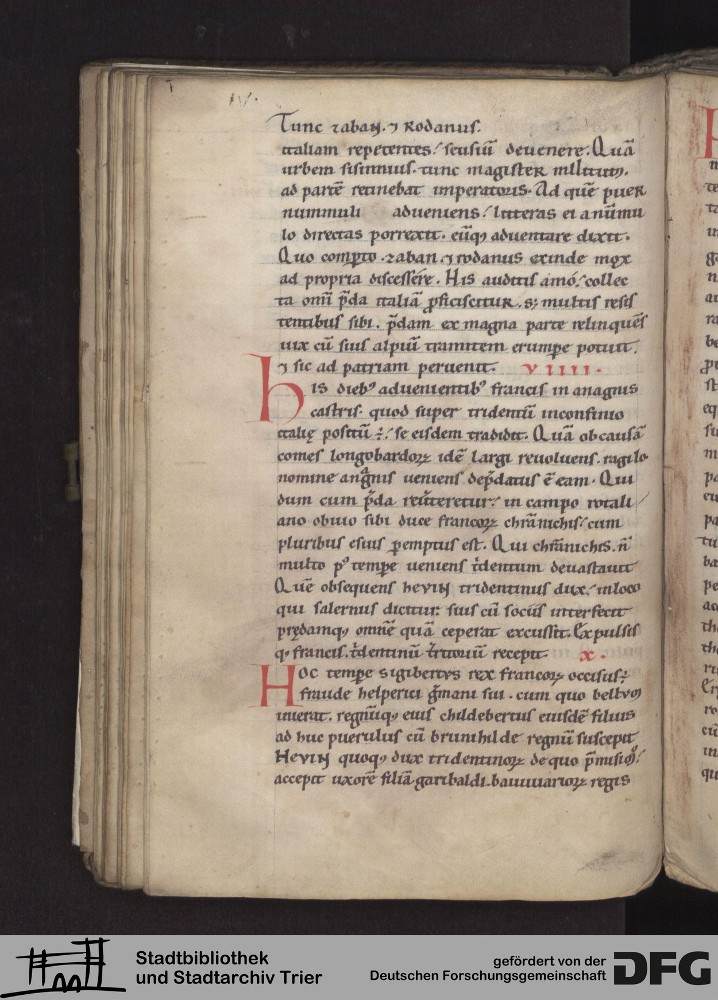 .IV.
Tunc zaban. ⁊ Rodanus.
italiam repetentes / seusiū deuenere. Quā
urbem sisinnius. tunc magister militum.
ad partē retinebat imperatoris. Ad quē puer
nummuli adueniens / litteras ei a nūmu
lo directas porrexit. eūq; aduentare dixit.
Quo comperto. zaban. ⁊ rodanus exinde mox
ad propria discessere. His auditis amo / collec
ta omī p̄da italiā ꝓficiscitur. s; multis resis
tentibus sibi. p̄dam ex magna parte relinquēs
uix cū suis alpiū tramitem erumpe potuit.
⁊ sic ad patriam peruenit. VIIII.
His dieb; aduenientib; francis in anagnis
castris. quod super tridentū in confinio
italię positū ÷ / se eisdem tradidit. Quā ob causā
comes longobardoꝝ idē largi reuoluens. ragilo
nomine anagnis ueniens dep̄datus ē eam. Qui
dum cum p̄da reũteretur / in campo rotali
ano obuio sibi duce francoꝝ chrānichis / cum
pluribus e suis peremptus est. Qui chrānichis. n̄
multo p⁹ tempe ueniens t̄dentum deuastauit
Quē obsequens HEVIN tridentinus dux / in loco
qui salernus dicitur suis cū sociis interfecit
prędamq; omnē quā ceperat excussit. Expulsis
q; francis. t̄dentinū t̄ritoriū recepit. X.
Hoc tempe sigibertus rex francoꝝ occisus ÷
fraude helperici g̃mani sui. cum quo bellum
inierat. regnūq; eius childebertus eiusdē filius
ad huc puerulus cū brunihilde regnū suscepit
HEVIN quoq; dux tridentinoꝝ de quo p̄misimus /
accepit uxorē filiā. garibaldi. bauuuarioꝝ regis
Stadtbibliothek
und Stadtarchiv Trier
gefördert von der
Deutschen Forschungsgemeinschaft
DFG